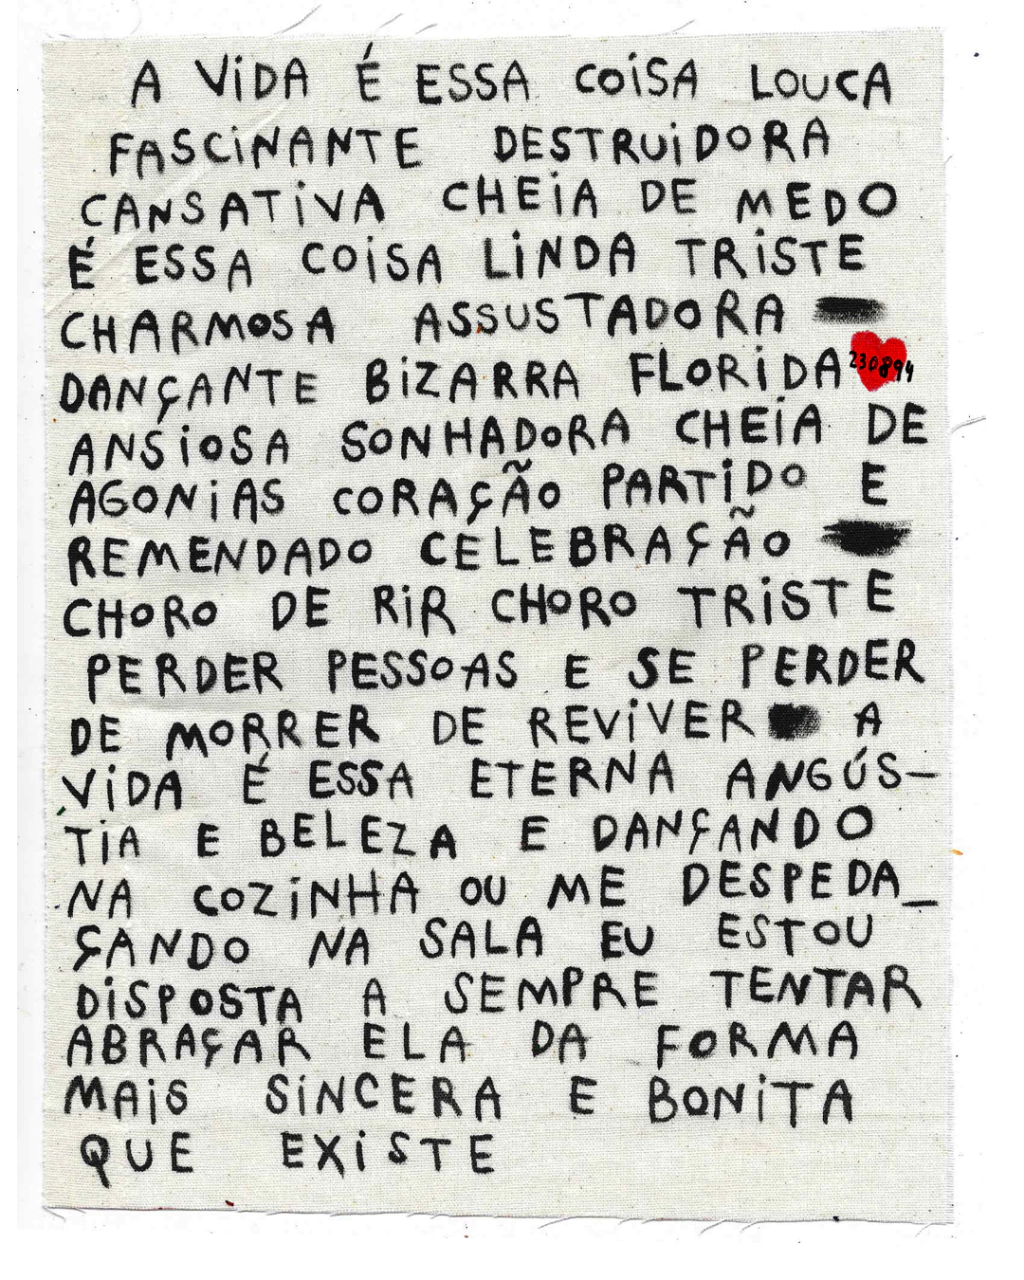 A VIDA É ESSA COISA LOUCA
FASCINANTE DESTRUIDORA
CANSATIVA CHEIA DE MEDO
É ESSA COISA LINDA TRISTE
CHARMOSA ASSUSTADORA
DANÇANTE BIZARRA FLORIDA 230894
ANSIOSA SONHADORA CHEIA DE
AGONIAS CORAÇÃO PARTIDO E
REMENDADO CELEBRAÇÃO
CHORO DE RIR CHORO TRISTE
PERDER PESSOAS E SE PERDER
DE MORRER DE REVIVER A
VIDA É ESSA ETERNA ANGÚS-
TIA E BELEZA E DANÇANDO
NA COZINHA OU ME DESPEDA_
ÇANDO NA SALA EU ESTOU
DISPOSTA A SEMPRE TENTAR
ABRAÇAR ELA DA FORMA
MAIS SINCERA E BONITA
QUE EXISTE